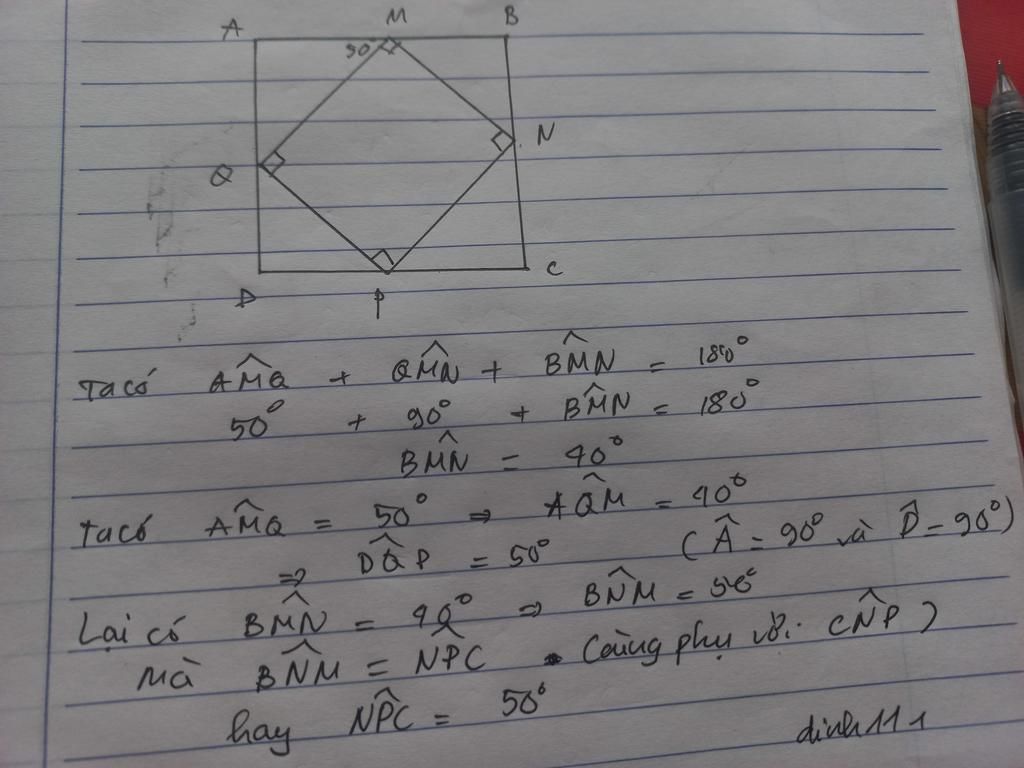 A M B
50°
N
Q
D P C
Ta có AM̂Q + QM̂N + BM̂N = 180°
50° + 90° + BM̂N = 180°
BM̂N = 40°
Ta có AM̂Q = 50° ⇒ AQ̂M = 40°
⇒ DQ̂P = 50° (Â = 90° và D̂ = 90°)
Lại có BM̂N = 40° ⇒ BN̂M = 50°
Mà BN̂M = NP̂C (cùng phụ với CN̂P)
hay NP̂C = 50°
dinh111